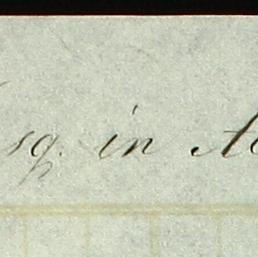 sq. in